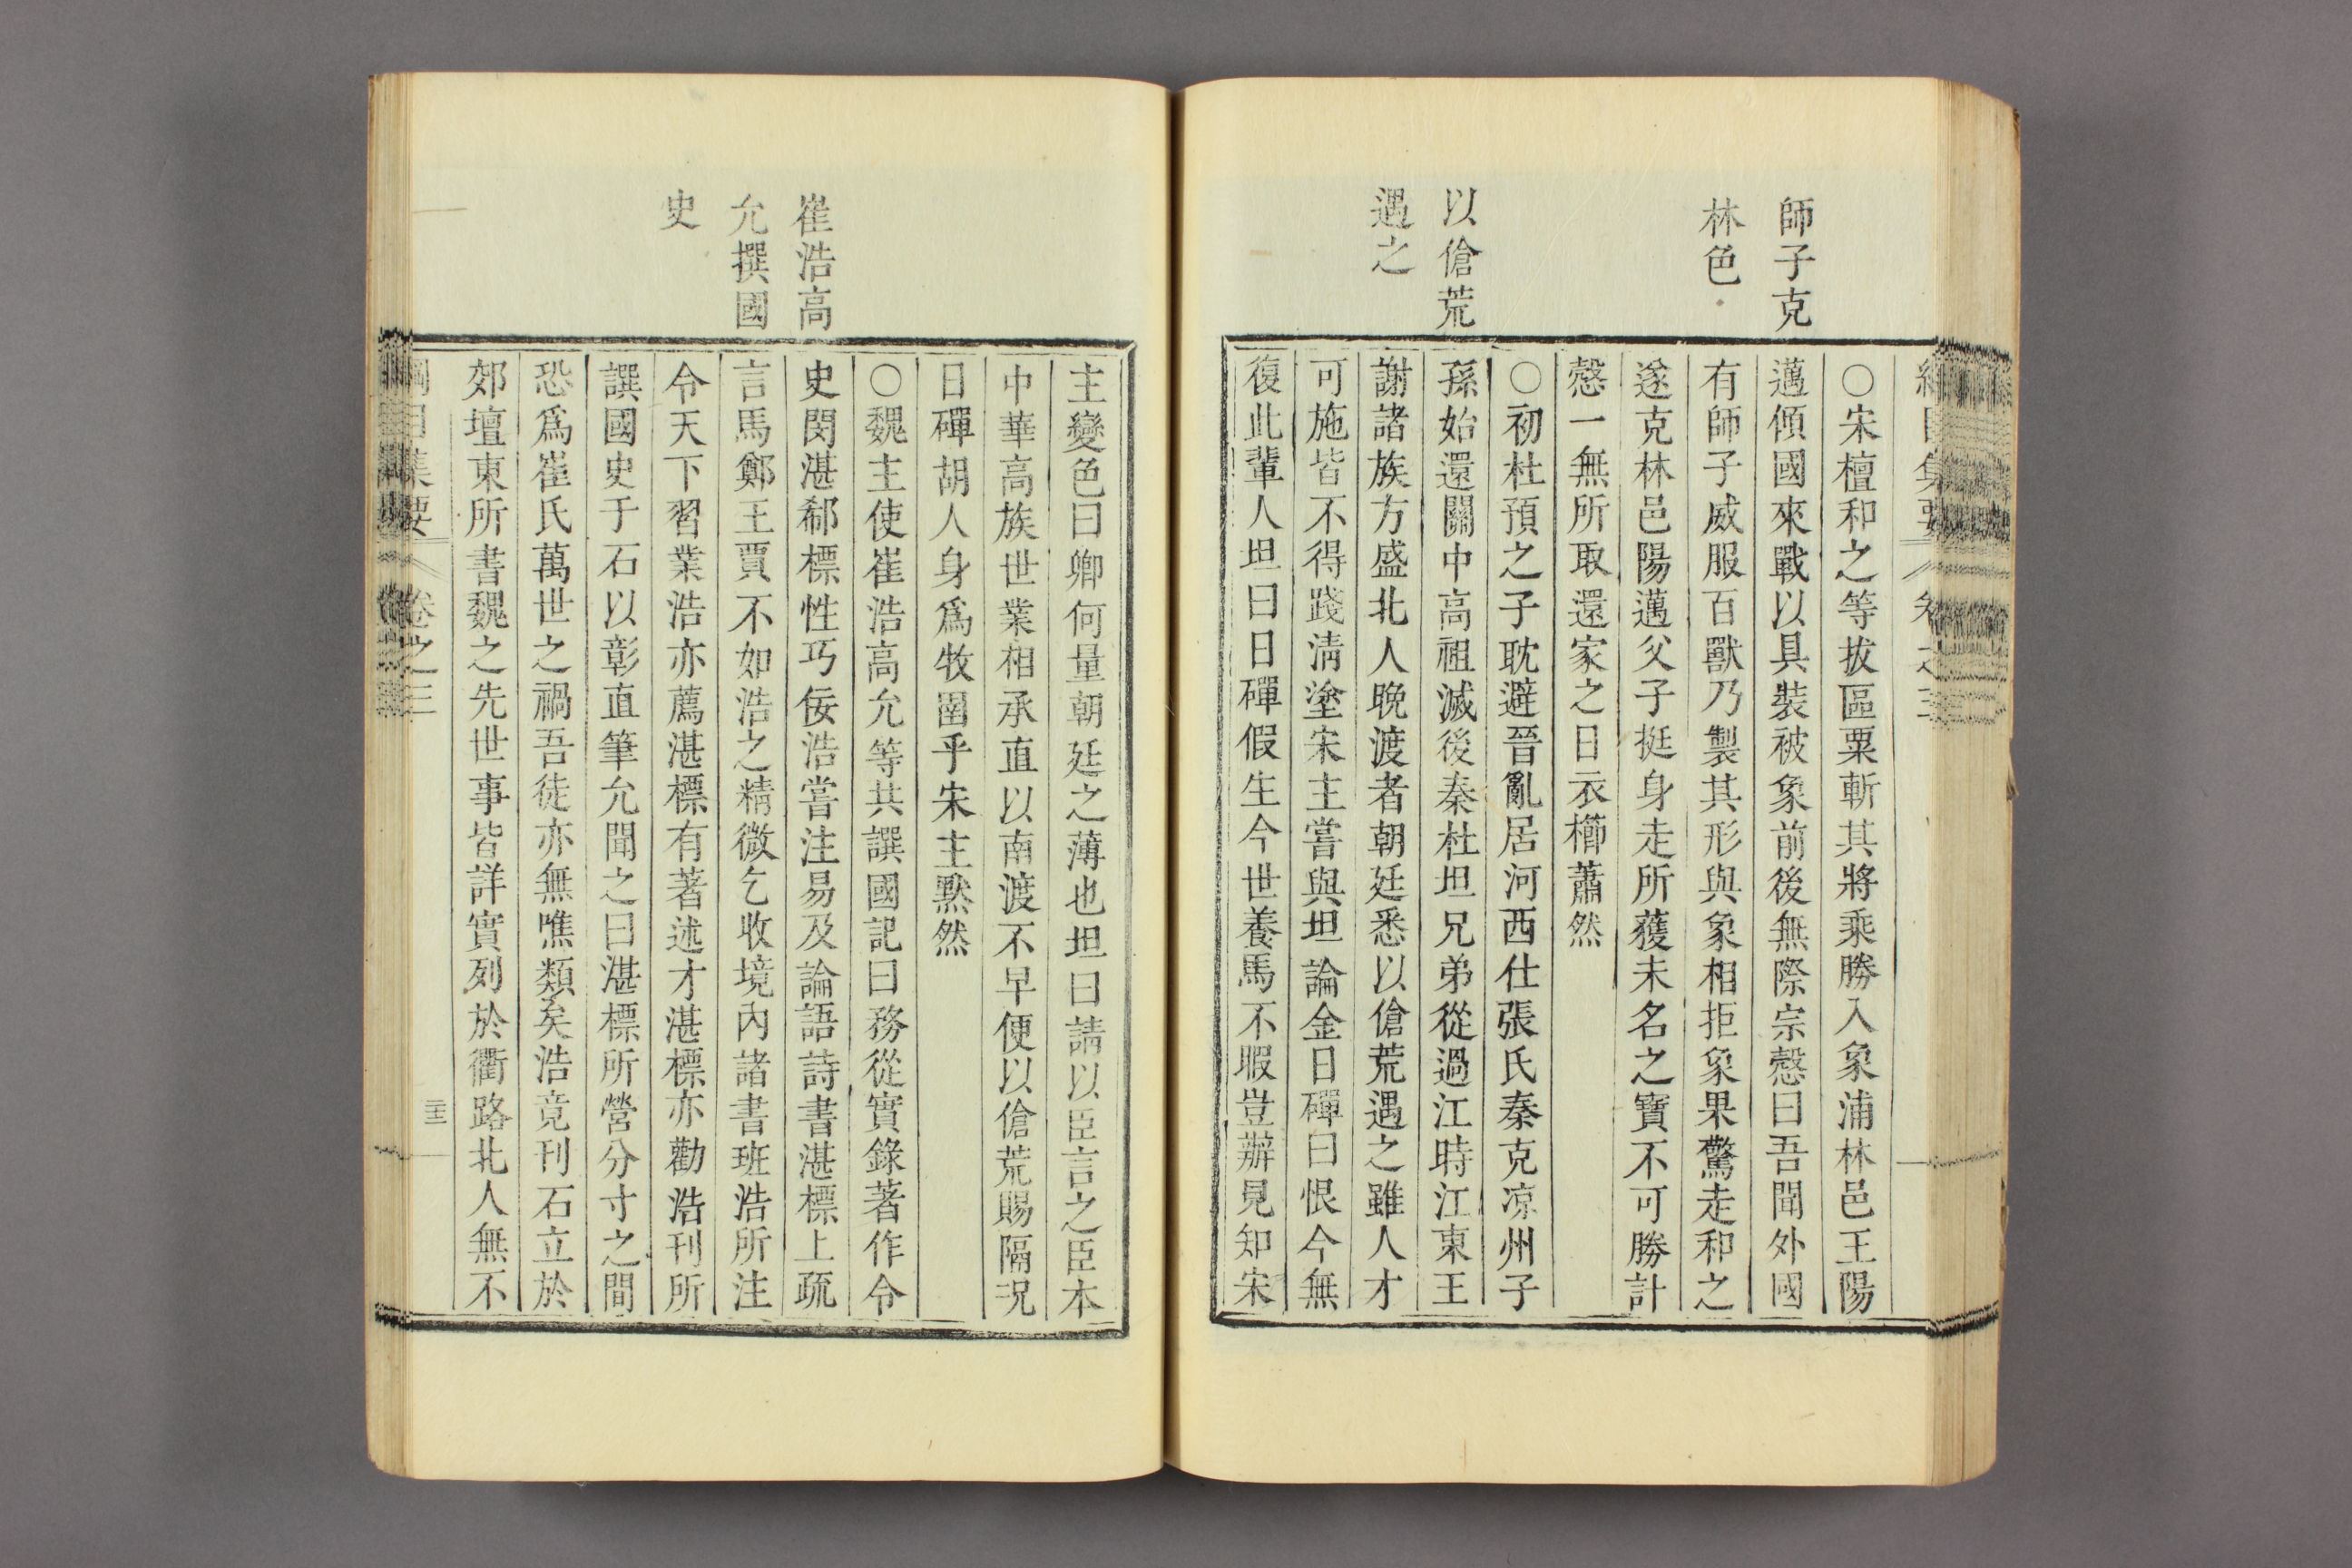 師子克
林色
以傖荒
遇之
○宋檀和之等拔區粟斬其將乘勝入象浦林邑王陽
邁傾國來戰以具裝被象前後無際宗慤曰吾聞外國
有師子威服百獸乃製其形與象相拒象果驚走和之
遂克林邑陽邁父子挺身走所獲未名之寶不可勝計
慤一無所取還家之日衣櫛蕭然
○初杜預之子耽避晉亂居河西仕張氏秦克凉州子
孫始還關中高祖滅後秦杜坦兄弟從過江時江東王
謝諸族方盛北人晚渡者朝廷悉以傖荒遇之雖人才
可施皆不得踐淸塗宋主嘗與坦論金日磾曰恨今無
復此輩人坦曰日磾假生今世養馬不暇豈辦見知宋
崔浩高
允撰國
史
主變色曰卿何量朝廷之薄也坦曰請以臣言之臣本
中華高族世業相承直以南渡不早便以傖荒賜隔况
日磾胡人身爲牧圉乎宋主默然
○魏主使崔浩高允等共譔國記曰務從實錄著作令
史閔湛郗標性巧佞浩嘗注易及論語詩書湛標上疏
言馬鄭王賈不如浩之精微乞收境內諸書班浩所注
令天下習業浩亦薦湛標有著述才湛標亦勸浩刊所
譔國史于石以彰直筆允聞之曰湛標所營分寸之間
恐爲崔氏萬世之禍吾徒亦無噍類矣浩竟刊石立於
郊壇東所書魏之先世事皆詳實列於衢路北人無不
綱目集要 卷之三